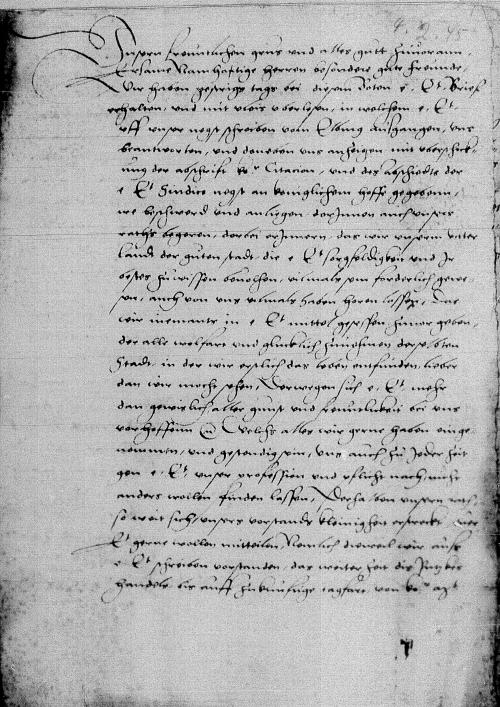 4. 2. 45
Unsern freuntlichen grus und alles gutt zuvorann,
Ersame Namhaftige herren besondere gute freunde,
Wir haben gestriges tags bei diesen boten e. Et. Brief
erhalten, und mit vleis uberlesen, in welchem e. Et.
uff unser negst schreiben vom Elbing ausgangen, uns
beantworten, und doneben uns anzeigen mit uberschick
ung der abschrift der Citacion, und des abschides der
e Et Sindico negst an koniglichem hoffe gegebenn,
ire beschwerd und anliegen, dorinnen auch unsers
raths begeren, dorbei erinnern, das wir unserm vater
landt der guten stadt, die e Et sorgfeldigkeit und Ir
bestes zuwissen bevolhen, vilmals forderlich gewe
sen, auch von uns vilmals haben horen lassen, das
wir niemants in e Et mittel gesessen zuvor geben,
der alle wolfart und glucklich zunehmen derselbten
Stadt, in der wir erstlich das leben entfunden, lieber
dan wir mocht sehen, Derwegen sich e. Et. mehr
dan gewislich aller gunst und freuntlikeit bei uns
vorhoffenn Welchs alles wir gerne haben einge
nommen, und gestendig sein, uns auch zu Jeder zeit
gen e. Et. unser profession und pflicht nach, nicht
anders wollen finden lassen, Derhalben unsern rat,
so weit sich unsers vorstandts kleinigheit erstreckt, euer
Et gerne wollen mitteilen, Nemlich dieweil wir aus
e Et schreiben vorstanden, das weiter zeit die Itziges
handels bis auff zukunftige tagfart, von ko